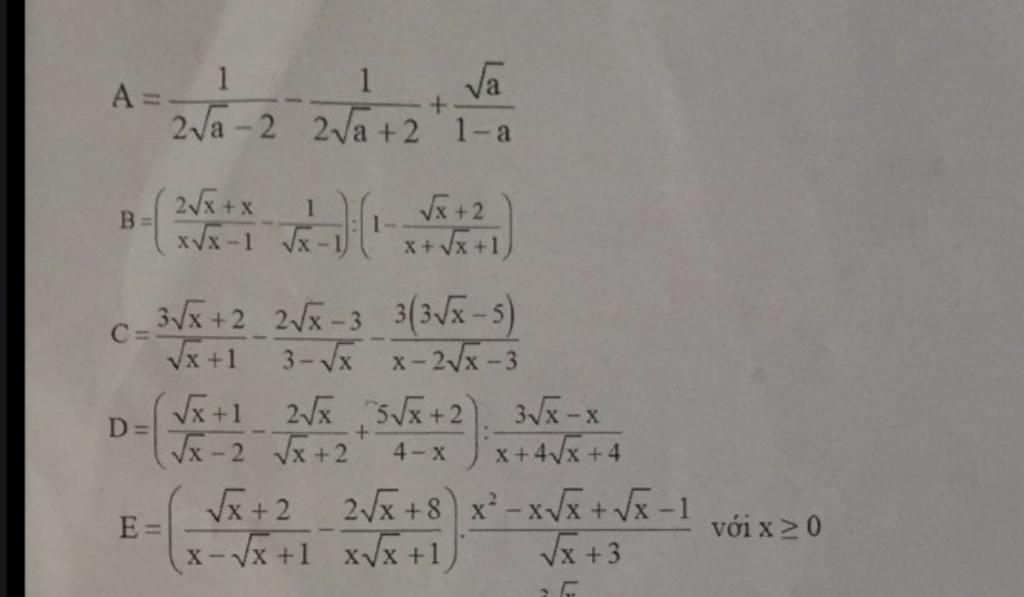 A = \frac{1}{2\sqrt{a}-2} - \frac{1}{2\sqrt{a}+2} + \frac{\sqrt{a}}{1-a}
B = \left( \frac{2\sqrt{x}+x}{x\sqrt{x}-1} - \frac{1}{\sqrt{x}-1} \right) : \left( 1 - \frac{\sqrt{x}+2}{x+\sqrt{x}+1} \right)
C = \frac{3\sqrt{x}+2}{\sqrt{x}+1} - \frac{2\sqrt{x}-3}{3-\sqrt{x}} - \frac{3(3\sqrt{x}-5)}{x-2\sqrt{x}-3}
D = \left( \frac{\sqrt{x}+1}{\sqrt{x}-2} - \frac{2\sqrt{x}}{\sqrt{x}+2} + \frac{5\sqrt{x}+2}{4-x} \right) : \frac{3\sqrt{x}-x}{x+4\sqrt{x}+4}
E = \left( \frac{\sqrt{x}+2}{x-\sqrt{x}+1} - \frac{2\sqrt{x}+8}{x\sqrt{x}+1} \right) . \frac{x^2-x\sqrt{x}+\sqrt{x}-1}{\sqrt{x}+3} với x ≥ 0